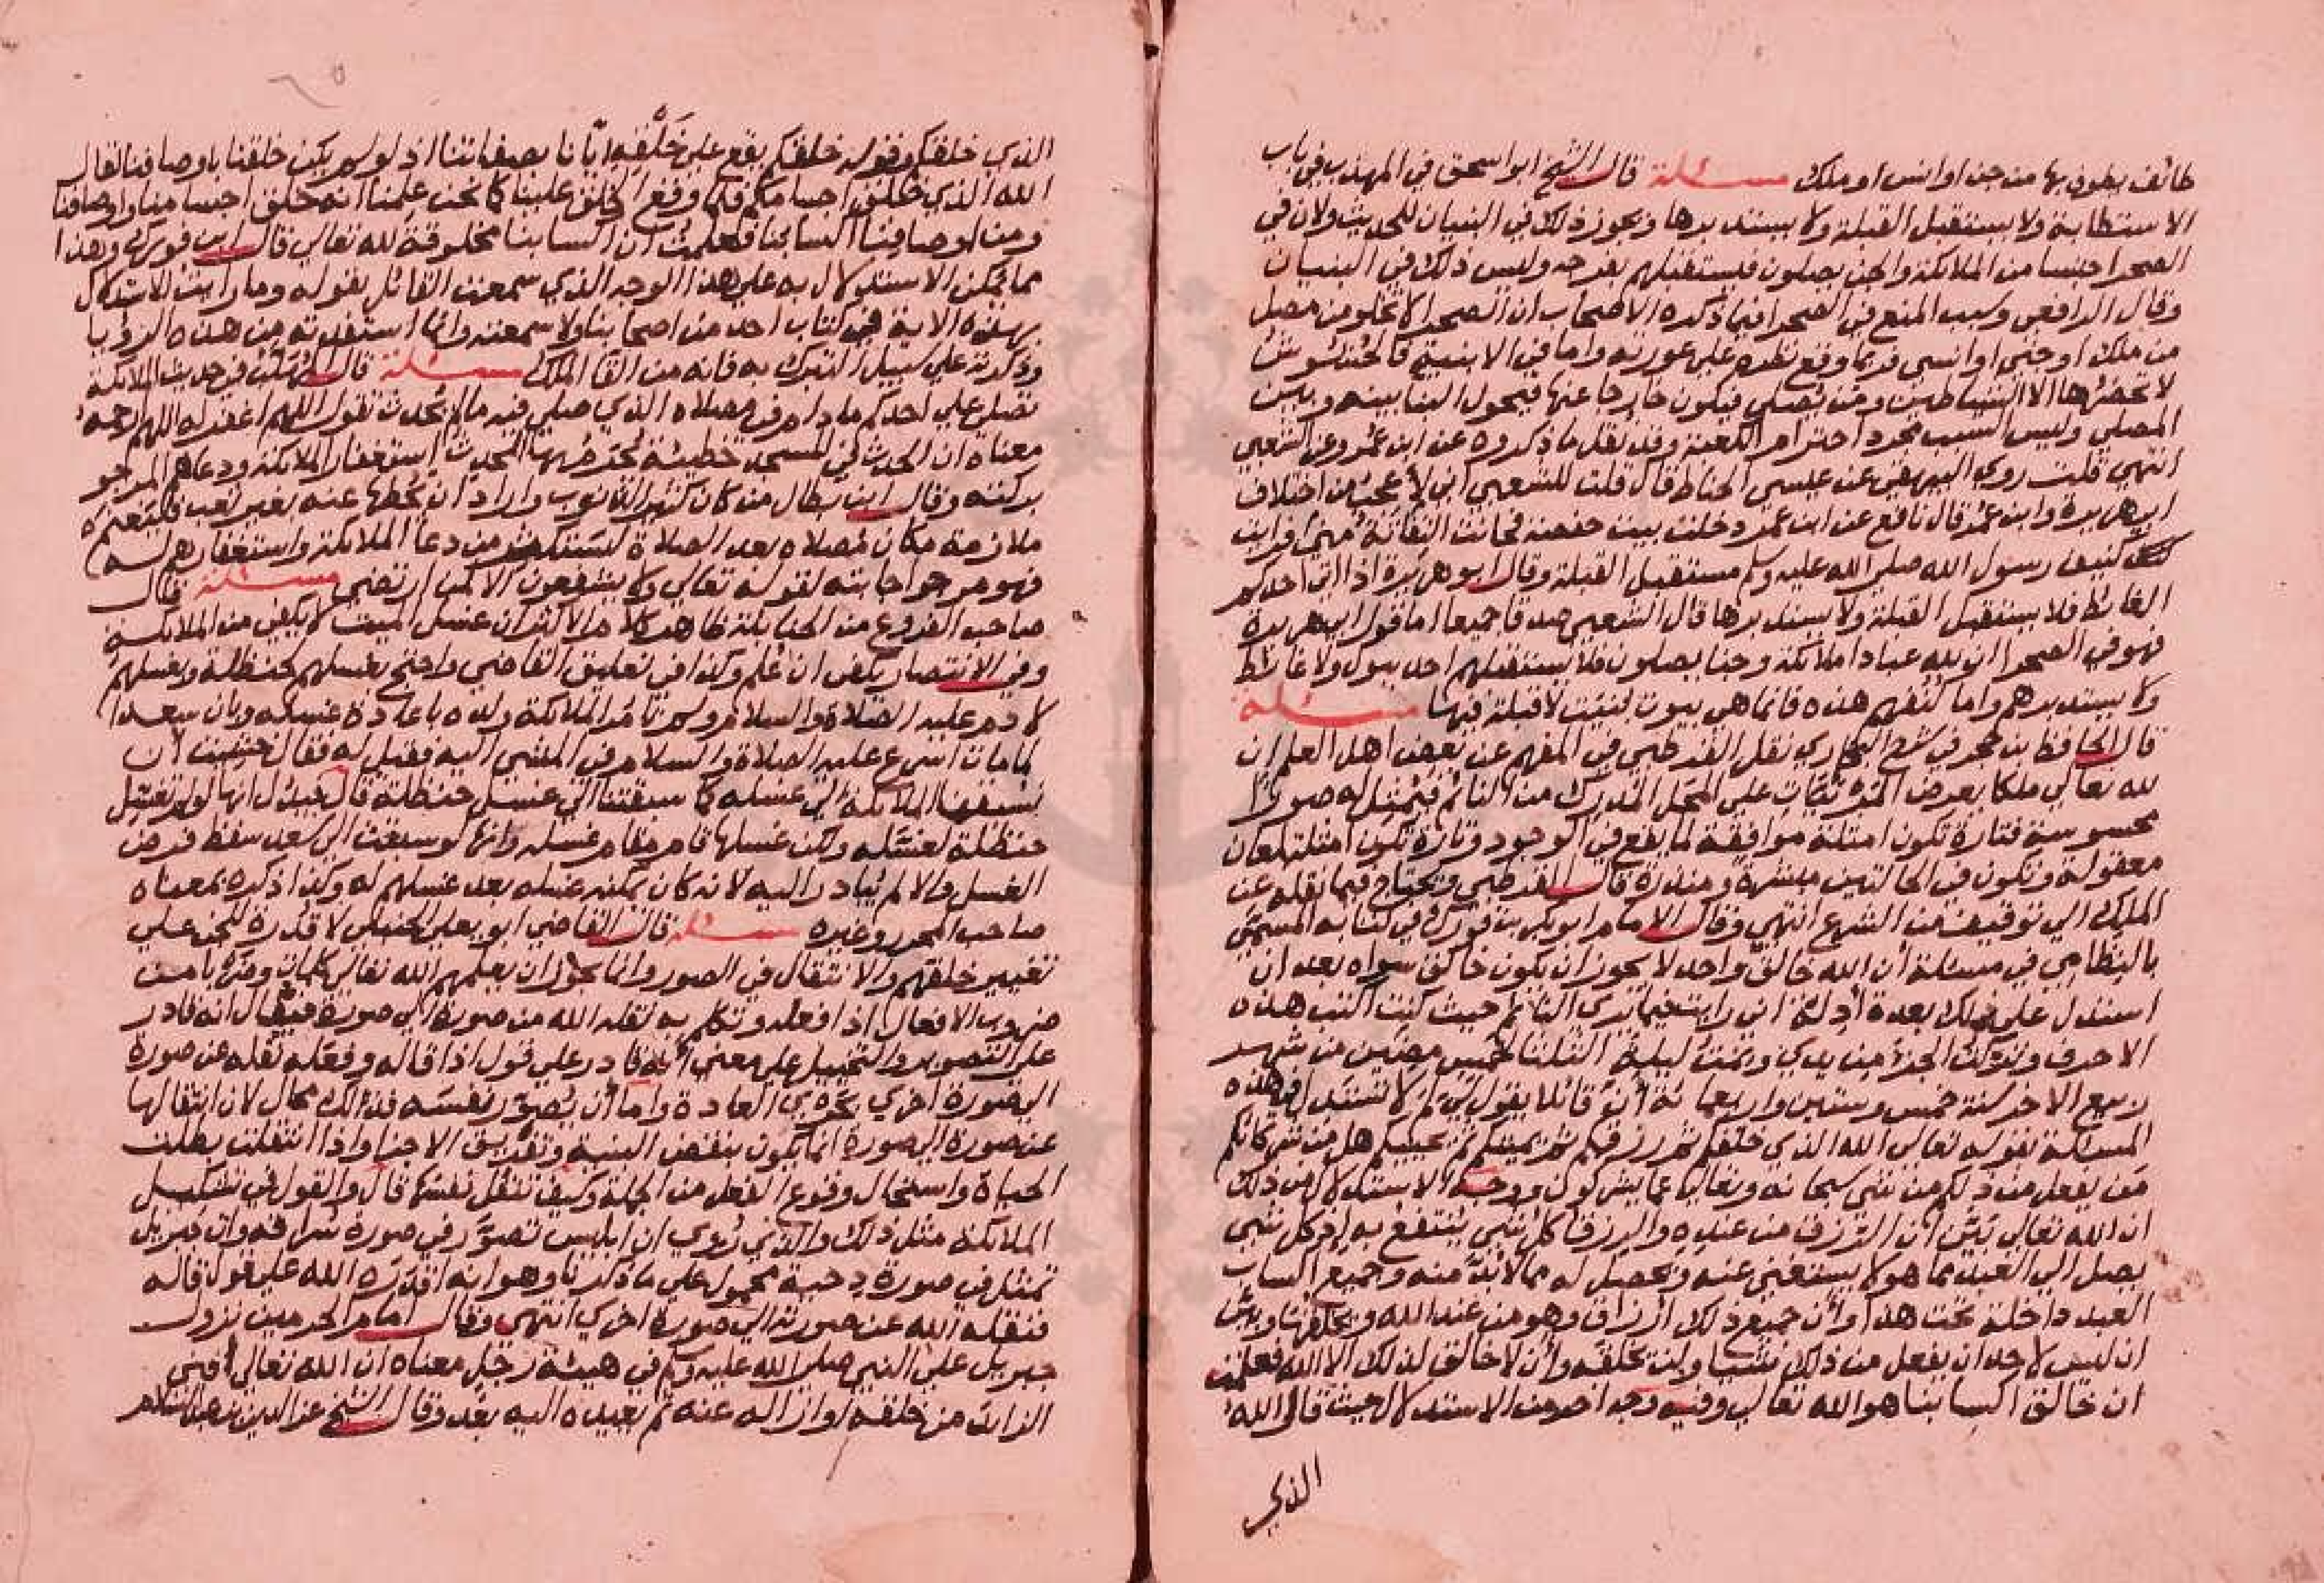 طائف يطوف بها من جن او انس او ملك مسئلة قال الشيخ ابو اسحق في المهذب في باب
الاستطابة ولا يستقبل القبلة ولا يستدبرها ويجوز ذلك في البنيان للحديث ولان في
الصحرا جنسا من الملائكة والجن يصلون فيستقبلهم بفرجه وليس ذلك في البنيان
وقال الرافعي وسبب المنع في الصحرا فيما ذكره الاصحاب ان الصحرا لا تخلو من مصل
من ملك او جني او انسي فربما وقع نظره على عورته واما في الابنية فالحشوش
لا تحضرها الا الشياطين ومن يصلي فيكون خارجا عنها فيحول البنا بينه وبين
المصلي وليس السبب مجرد احترام الكعبة وقد نقل ما ذكروه عن ابن عمر وعن الشعبي
انتهى قلت روى البيهقي عن عيسى الحناط قال قلت للشعبي اني لاعجب من اختلاف
ابي هريرة وابن عمر قال نافع عن ابن عمر دخلت بيت حفصة فحانت التفاتة مني فرايت
كنيف رسول الله صلى الله عليه وسلم مستقبل القبلة وقال ابو هريرة اذا اتى احدكم
الغائط فلا يستقبل القبلة ولا يستدبرها قال الشعبي صدقا جميعا اما قول ابي هريرة
فهو في الصحرا ان لله عبادا ملائكة وجنا يصلون فلا يستقبلهم احد ببول ولا غائط
ولا يستدبرهم واما كنفهم هذه فانما هي بيوت بنيت لا قبلة فيها مسئلة
قال الحافظ بن حجر في شرح البخاري نقل القرطبي في المفهم عن بعض اهل العلم ان
لله تعالى ملكا يعرض المرئيات على المحل المدرك من النائم فيمثل له صورا
محسوسة فتارة تكون امثلة موافقة لما يقع في الوجود وتارة تكون امثلة لمعان
معقولة وتكون في الحالتين مبشرة ومنذرة قال القرطبي ويحتاج فيما نقله عن
الملك الى توقيف من الشرع انتهى وقال الامام ابو بكر بن فورك في كتابه المسمى
بالنظامي في مسئلة ان الله خالق واحد لا يجوز ان يكون خالق سواه بعد ان
استدل على ذلك بعدة ادلة اني رايت فيما يرى النائم حيث كنت اكتب هذه
الاحرف وتركت الجزء من يدي ونمت ليلة الثلثا لخمس مضين من شهر
ربيع الاخر سنة خمس وستين واربعمائة كان قائلا يقول لي لم لا تستدل في هذه
المسئلة بقوله تعالى الله الذي خلقكم ثم رزقكم ثم يميتكم ثم يحييكم هل من شركائكم
من يفعل من ذلكم من شي سبحانه وتعالى عما يشركون ووجه الاستدلال من ذلك
ان الله تعالى بين ان الرزق من عنده والرزق كل شي ينتفع به اذ كل شي
يصل الى العبد مما هو لا يستغني عنه ويحصل له مما لا بد منه وجميع اكساب
العبد داخلة تحت هذا وأن جميع ذلك ارزاق وهو من عند الله وبخلقه وبين
ان ليس لاحد ان يفعل من ذلك شيا ولن يخلقه وأن لا خالق لذلك الا الله فعلمت
ان خالق اكسابنا هو الله تعالى وفيه وجه اخر من الاستدلال حيث قال الله
الذي
الذي خلقكم فقوله خلقكم يقع على خلقه ايانا بصفاتنا اذ لو لم يكن خلقنا باوصافنا لقال
الله الذي خلق اجسامكم فلما وقع الخلق علينا كما نحن علمنا انه خلق اجسامنا واوصافنا
ومن اوصافنا اكسابنا فعلمت ان اكسابنا مخلوقة لله تعالى قال ابن فورك وهذا
مما يمكن الاستدلال به على هذا الوجه الذي سمعت القائل يقوله وما رايت الاستدلال
بهذه الاية في كتاب احد من اصحابنا ولا سمعته وانما استفدته من هذه الرؤيا
وذكرته على سبيل التبرك به فانه من القا الملك مسئلة قال المهلب في حديث الملائكة
تصلي على احدكم ما دام في مصلاه الذي صلى فيه ما لم يحدث تقول اللهم اغفر له اللهم ارحمه
معناه ان الحدث في المسجد خطيئة يحرم بها المحدث استغفار الملائكة ودعاهم المرجو
بركته وقال ابن بطال من كان كثير الذنوب واراد ان يحطها عنه بغير تعب فليغتنم
ملازمة مكان مصلاه بعد الصلاة ليستكثر من دعا الملائكة واستغفارهم له
فهو مرجو اجابته لقوله تعالى ولا يشفعون الا لمن ارتضى مسئلة قال
صاحب الفروع من الحنابلة ظاهر كلام الاكثر ان غسل الميت لا يكفي من الملائكة
وفي الانتصار يكفي ان علم وكذا في تعليق القاضي واحتج بغسلهم لحنظلة وبغسلهم
لادم عليه الصلاة والسلام ولم تامر الملائكة ولده باعادة غسله وبان سعدا
لما مات اسرع عليه الصلاة والسلام في المشي اليه فقيل له فقال خشيت ان
تسبقنا الملائكة الى غسله كما سبقتنا الى غسل حنظلة قال فيدل انها لو لم تغسل
حنظلة لغسله ولكن غسلها قام مقام غسله وانها لو سبقت الى سعد سقط فرض
الغسل والا لم يبادر اليه لانه كان يمكنه غسله بعد غسلهم له وكذا ذكره بمعناه
صاحب المحرر وغيره مسئلة قال القاضي ابو يعلى الحنبلي لا قدرة للجن على
تغيير خلقهم والانتقال في الصور وانما يجوز ان يعلمهم الله تعالى كلمات وضربا من
ضروب الافعال اذا فعله وتكلم به نقله الله من صورة الى صورة فيقال انه قادر
على التصوير والتخييل على معنى انه قادر على قول اذا قاله وفعله نقله عن صورة
الى صورة اخرى بجري العادة واما ان يصور نفسه فذلك محال لان انتقالها
عن صورة الى صورة انما يكون بنقض البنية وتفريق الاجزا واذا انتقلت بطلت
الحياة واستحال وقوع الفعل من الجملة وكيف تنقل نفسها قال والقول في تشكيل
الملائكة مثل ذلك والذي روي ان ابليس تصور في صورة سراقة وان جبريل
تمثل في صورة دحية محمول على ما ذكرنا وهو انه اقدره الله على قول قاله
فنقله الله عن صورته الى صورة اخرى انتهى وقال امام الحرمين نزول
جبريل على النبي صلى الله عليه وسلم في هيئة رجل معناه ان الله تعالى افنى
الزائد من خلقه او ازاله عنه ثم يعيده اليه بعد وقال الشيخ عز الدين بن عبد السلام